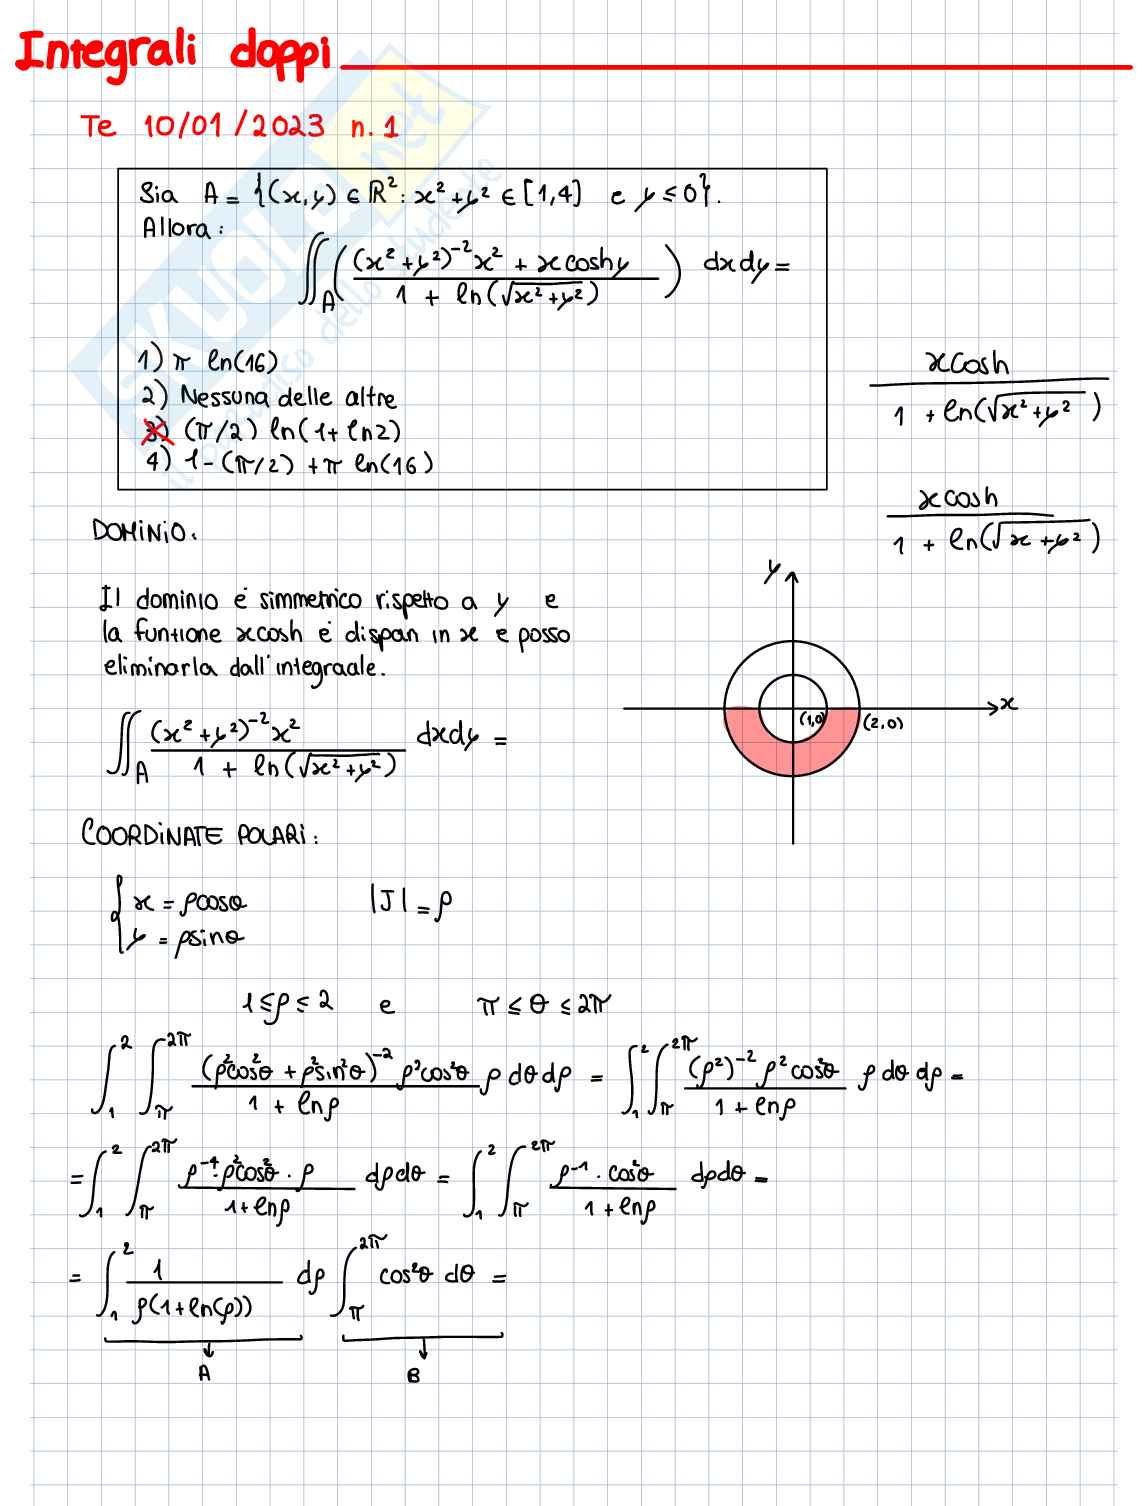 Integrali doppi
Te 10/01/2023 n.1
Sia A = {(x,y) ∈ ℝ²: x²+y² ∈ [1,4] e y ≤ 0}.
Allora:
∬_A ( ((x²+y²)⁻² x² + x cosh y) / (1 + ln(√(x²+y²))) ) dxdy =
1) π ln(16)
2) Nessuna delle altre
3) (π/2) ln(1+ ln2)
4) 1-(π/2) + π ln(16)
xcosh / (1 + ln(√(x²+y²)))
xcosh / (1 + ln(√(x+y²)))
DOMINIO.
Il dominio è simmetrico rispetto a y e
la funzione xcosh è dispari in x e posso
eliminarla dall'integraale.
y
x
(1,0)
(2,0)
∬_A ((x²+y²)⁻² x²) / (1 + ln(√(x²+y²))) dxdy =
COORDINATE POLARI:
{ x = ρcosθ |J| = ρ
y = ρsinθ
1 ≤ ρ ≤ 2 e π ≤ θ ≤ 2π
∫₁² ∫_π^2π ((ρ²cos²θ + ρ²sin²θ)⁻² ρ²cos²θ) / (1 + lnρ) ρ dθdρ = ∫₁² ∫_π^2π ((ρ²)⁻² ρ² cos²θ) / (1 + lnρ) ρ dθ dρ =
= ∫₁² ∫_π^2π (ρ⁻⁴·ρ²cos²θ · ρ) / (1+lnρ) dρdθ = ∫₁² ∫_π^2π (ρ⁻¹ · cos²θ) / (1 + lnρ) dρdθ =
= ∫₁² 1 / (ρ(1+ln(ρ))) dρ ∫_π^2π cos²θ dθ =
A B
SKUOLA.net
il paradiso dello studente